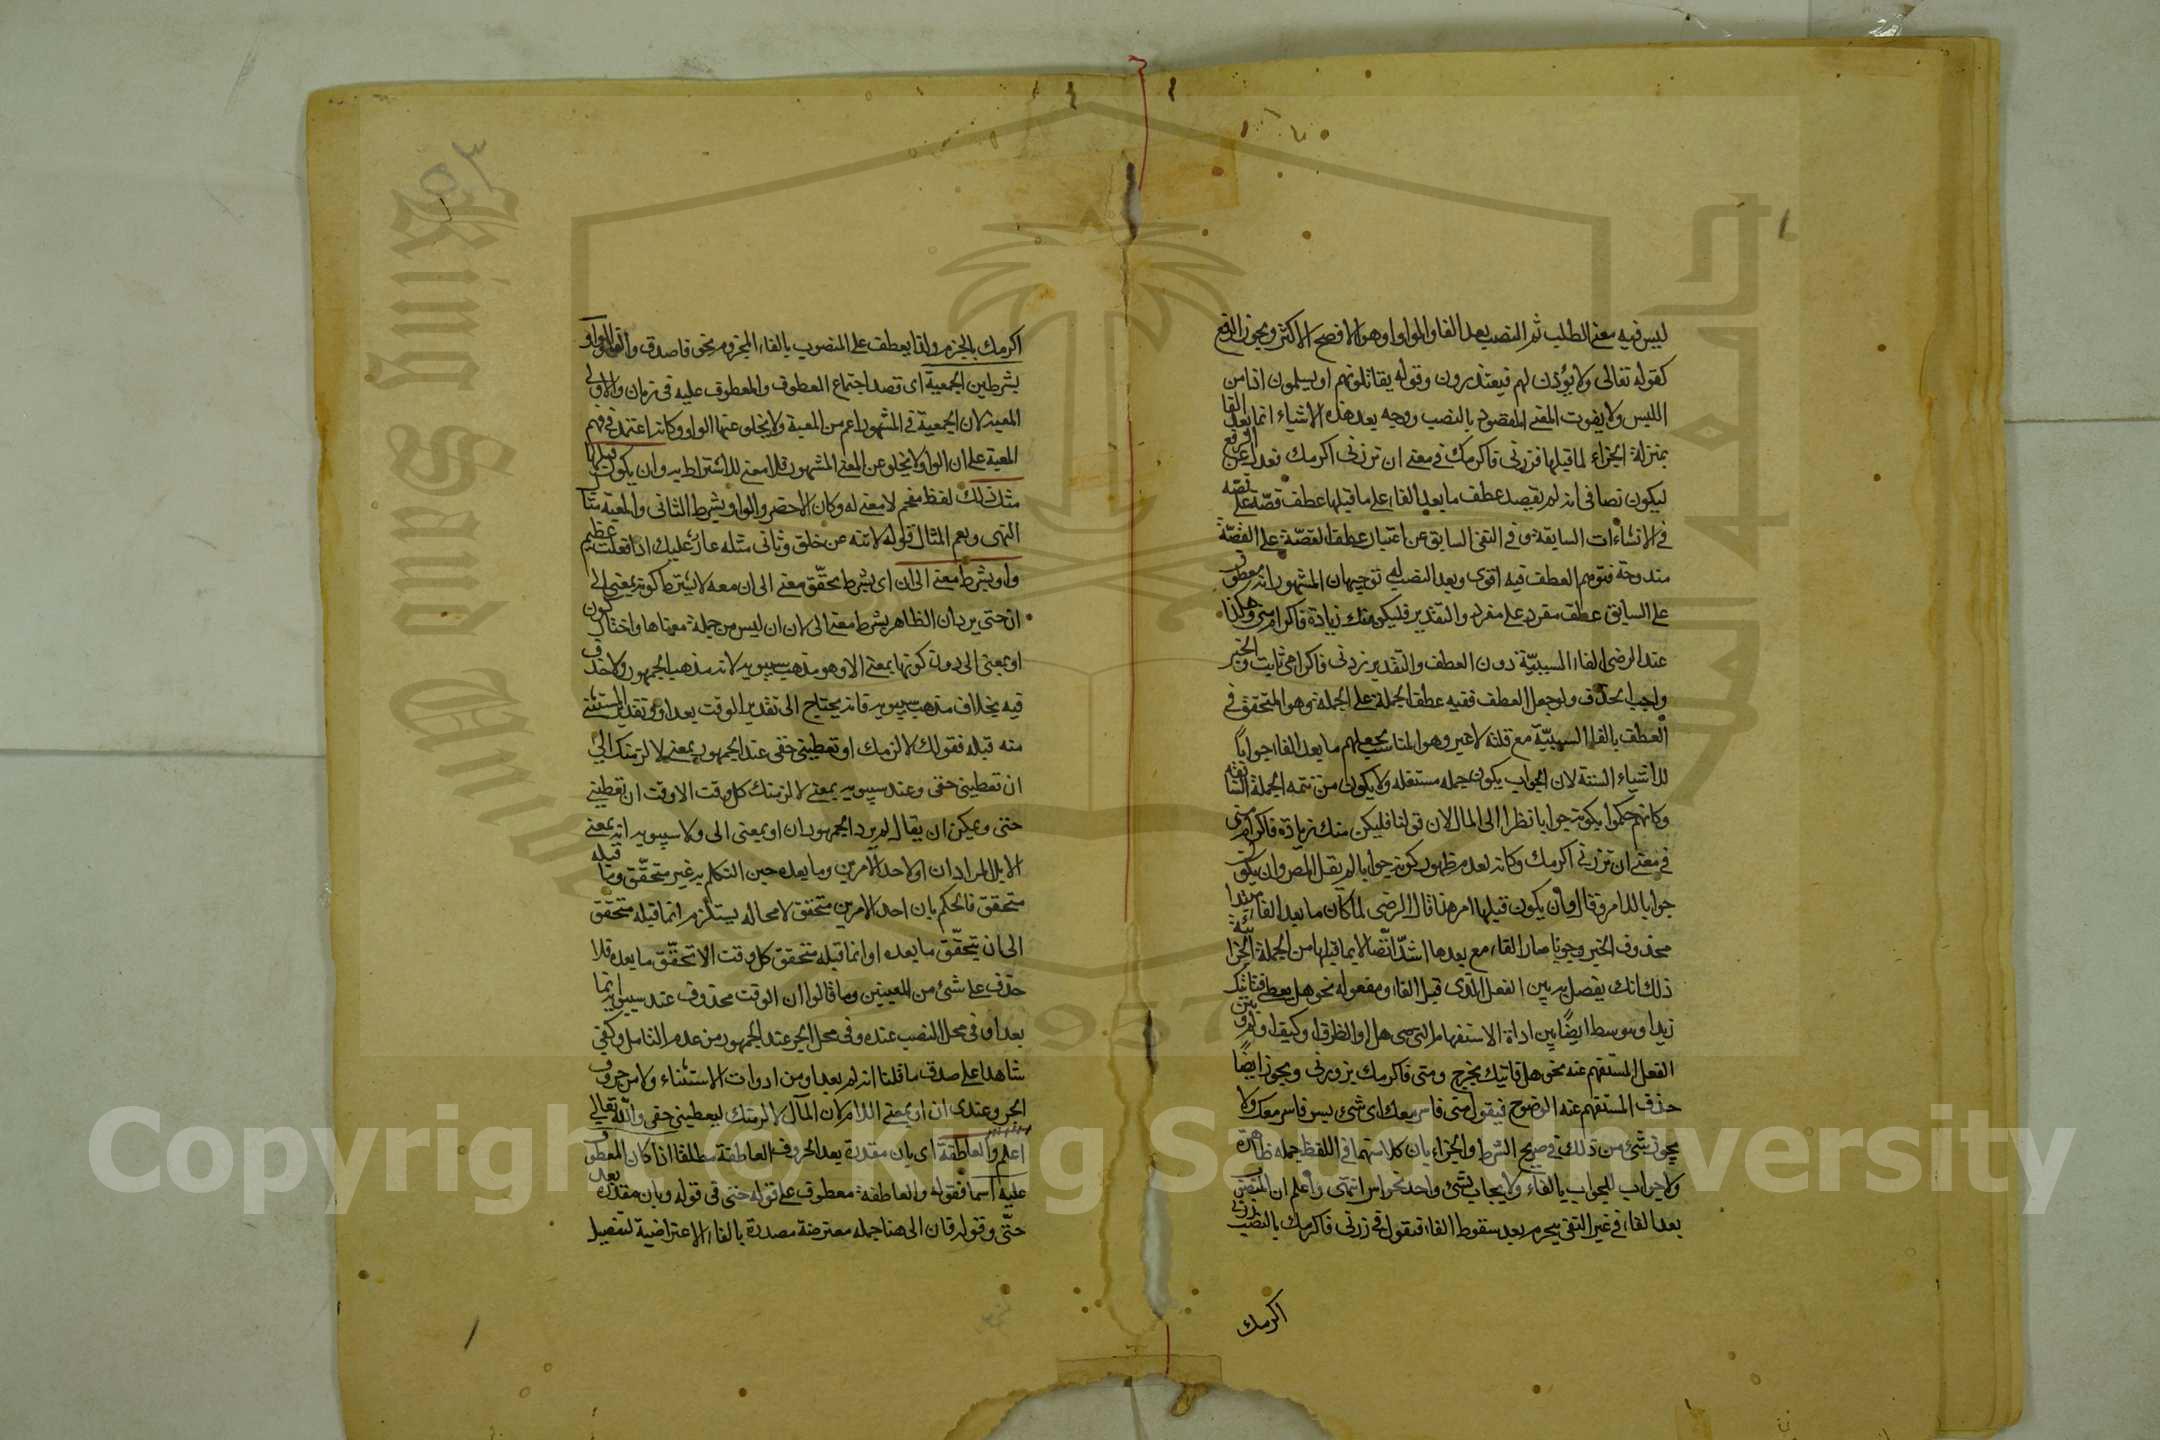 ليس فيه معنى الطلب ثم النصب بعد الفا والواو او هو الافصح الاكثر ويجوز الرفع
كقوله تعالى ولا يؤذن لهم فيعتذرون وقوله يقاتلونهم او يسلمون اذا من
اللبس ولا يفوت المعنى المقصود بالنصب ووجه بعد هذه الاشياء انما بعد الفا
بمنزلة الجزاء لما قبلها فزرنى فاكرمك فى معنى ان تزرنى اكرمك فعدل عن الرفع
ليكون نصا فى انه لم يقصد عطف ما بعد الفاء على ما قبلها عطف قصّة على قصّه
فى الانشاءات السابقة وفى النفى السابق عن اعتبار عطف القصّة على القصّة
مندوحة فتوهم العطف فيه اقوى وبعد النصب له توجيهان المشهور انه معطوف
على السابق عطف مفرد على مفرد والتقدير فليكن منك زيادة فاكرام منى وهذا
عند الرضى الفاء السببيّة دون العطف والتقدير زرنى فاكرامى ثابت والخبر
واجب الحذف ولو جعل العطف ففيه عطف الجملة على الجملة وهو المتحقق فى
العطف بالفاء السببيّة مع قلته لا غير وهو المناسب بجعلهم ما بعد الفاء جوابًا
للاشياء الستة لان الجواب يكون جمله مستقله ولا يكون من تتمه الجملة السابقه
وكانهم حكموا بكونه جوابا نظرا الى المال لان قولنا فليكن منك زيادة فاكرام منى
فى معنى ان تزرنى اكرمك وكانه لعدم ظهور كونه جوابا لم يقل المص وان يكون
جوابا للامر وقال وان يكون قبلها امر هنا قال الرضى لما كان ما بعد الفاء مبتدا
محذوف الخبر وجوبا صار الفاء مع بعدها اشدّ اتّصالا بما قبلها من الجملة الجزائيّة
ذلك انك يفصل به بين الفعل الذى قبل الفاء ومفعوله نحو هل يعطى فتاتيك
زيدا وتوسط ايضًا بين اداة الاستفهام التى هى هل او الظرف وكيف وبين
الفعل المستفهم عنه نحو هل فاتيك يخرج ومتى فاكرمك يزورنى ويجوز ايضًا
حذف المستفهم عنه الوضوح فيقول متى فاسر معك اى شئ يسير فاسير معك ولا
يجوز شئ من ذلك فى صريح الشرط والجزاء بان كلا منهما فى اللفظ جمله ظاهرة
ولا جواب للجواب بالفاء ولا يجاب شئ واحد نحو اس انتهى واعلم ان المنصوب
بعد الفاء فى غير النفى يجزم بعد سقوط الفاء فتقول فى زرنى فاكرمك بالنصب زرنى
اكرمك
اكرمك بالجزم ولذا يعطف على المنصوب بالفاء المجزوم نحو فاصدق واكن والواو
بشرطين الجمعية اى قصد اجتماع المعطوف والمعطوف عليه فى زمان والاولى
المعية لان الجمعية فى المشهور اعم من المعية ولا يخلو عنها الواو وكانه اعتمد فى فهم
المعية على ان الواو لا يخلو عن المعنى المشهور فلا معنى للاشتراط به وان يكون قبلها
مثل ذلك لفظ مفخم لا معنى له وكان الاخصر والواو بشرط الثانى والمعية
النهى ونعم المثال قوله لا تنه عن خلق وتاتى مثله عار عليك اذا فعلت عظيم
واو بشرط معنى الى ان اى بشرط تحقّق معنى الى ان معه لا يشترط كونه بمعنى الى
ان حتى يرد ان الظاهر بشرط معنى الى لان ان ليس من جملة معناها واختار كون
او بمعنى الى دون كونها بمعنى الا وهو مذهب سيبويه لانه مذهب الجمهور ولا حذف
فيه بخلاف مذهب سيبويه فانه يحتاج الى تقدير الوقت بعد او وتقدير المستثنى
منه قبله فقولك لالزمك او تعطينى حقى عند الجمهور بمعنى لالزمنك الى
ان تعطينى حقى وعند سيبويه بمعنى لالزمنك كل وقت الا وقت ان تعطينى
حقى ويمكن ان يقال لم يرد الجمهور ان او بمعنى الى ولا سيبويه انه بمعنى
الا بل المراد ان او لاحد الامرين وما بعده حين التكلم به غير متحقّق وما قبله
متحقق فالحكم بان احد الامرين متحقق لا محاله يستلزم انما قبله متحقّق
الى ان يتحقّق ما بعده او انما قبله متحقق كل وقت الا تحقّق ما بعده فلا
حذف على شئ من المعنيين وما قالوا ان الوقت محذوف عند سيبويه انما
بعد او فى محل النصب عنده وفى محل الجر عند الجمهور من عدم التامل وكفى
شاهدا على صدق ما قلنا انه لم يعد او من ادوات الاستثناء ولا من حروف
الجر وعندى ان او بمعنى اللام لان المآل لالزمنك ليعطينى حقى واللّه تعالى
اعلم والعاطفة اى بان مقدرة بعد الحروف العاطفة مطلقا اذا كان المعطوف
عليه اسما فقوله والعاطفة معطوف على قوله حتى فى قوله وبان مقدرة بعد
حتّى وقوله فان الى هنا جمله معترضة مصدرة بالفاء الاعتراضية لتفصيل
Copyright © King Saud University
King Saud University
1957